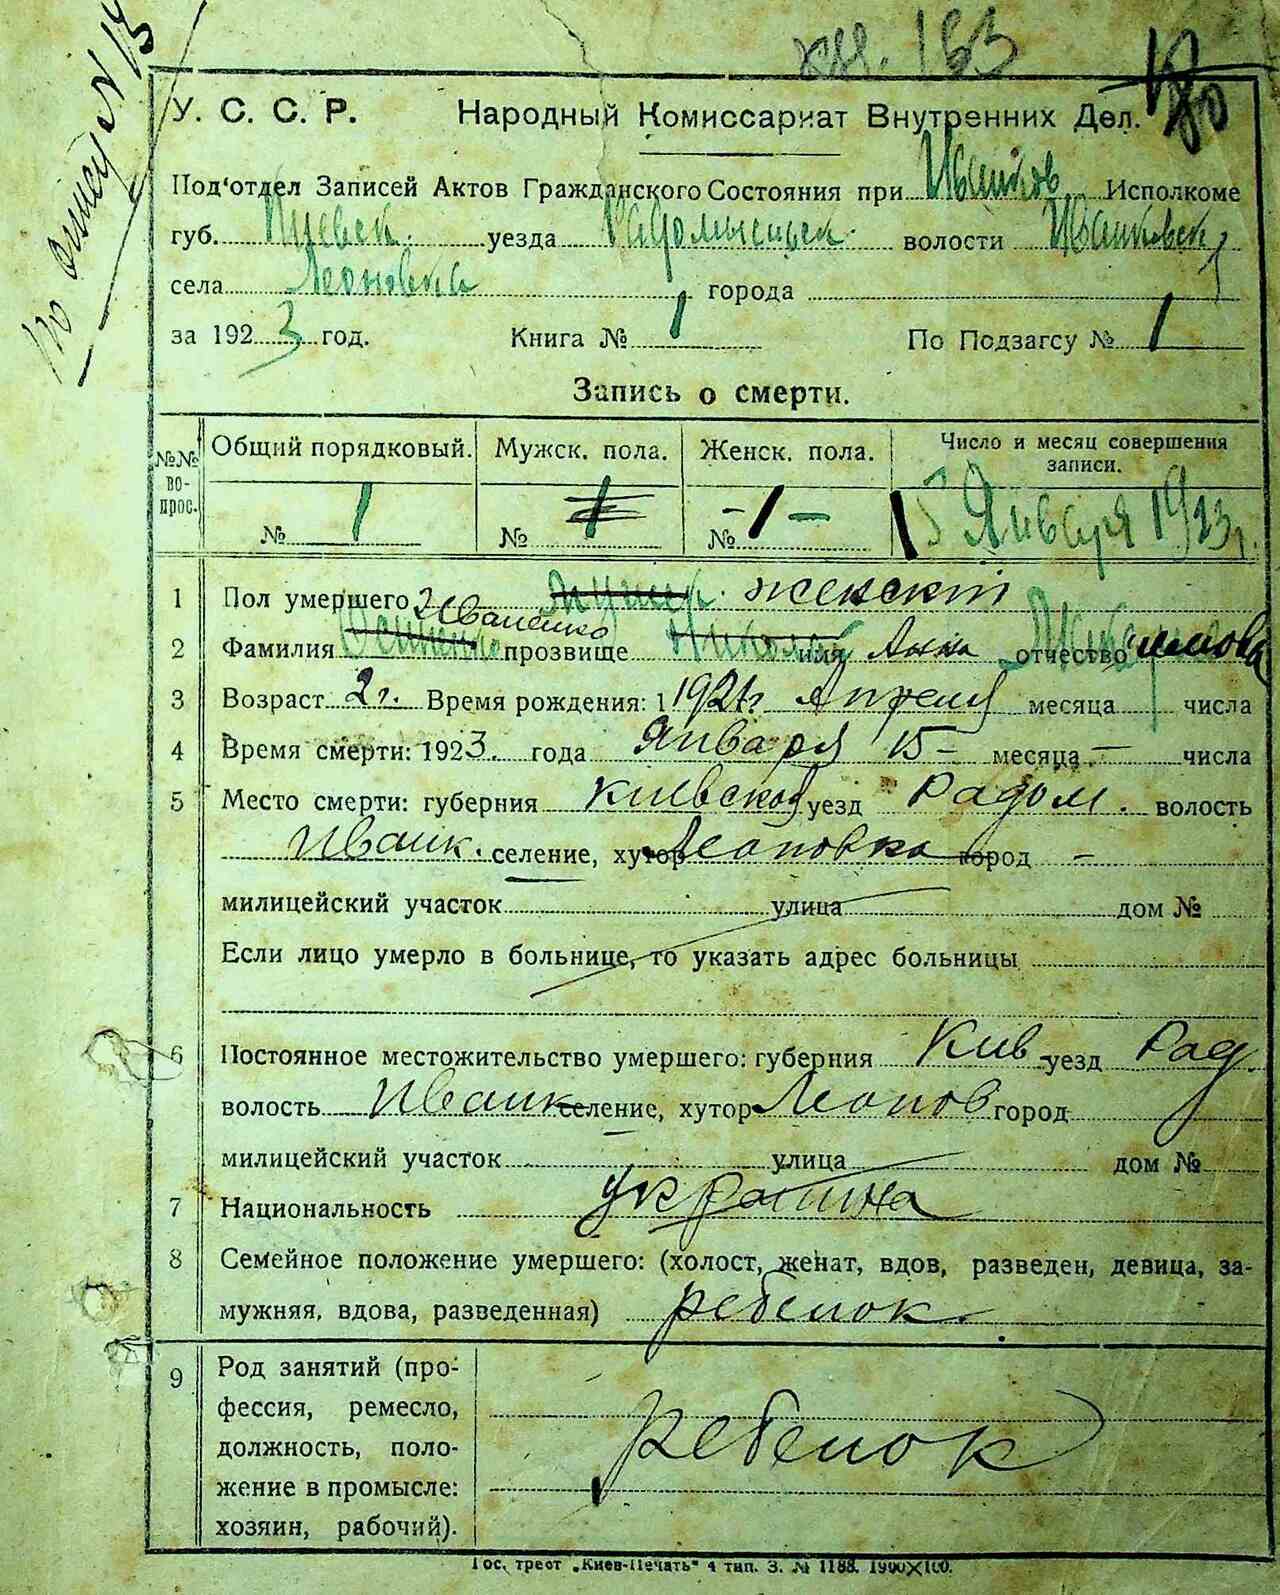 по описи N 13
кн. 153
У. С. С. Р. Народный Комиссариат Внутренних Дел.
Под'отдел Записей Актов Гражданского Состояния при Иванков. Исполкоме
губ. Киевск. уезда Радомысльск. волости Иванковск.
села Леоновка города
за 1923 год. Книга № 1 По Подзагсу № 1
Запись о смерти.
№№ во-прос. Общий порядковый. Мужск. пола. Женск. пола. Число и месяц совершения записи.
№ 1 № 1 № -1- 15 Января 1923 г.
1 Пол умершего женский
2 Фамилия Иваненко прозвище имя Анна отчество
3 Возраст 2 г. Время рождения: 1 1921 г. Апреля месяца числа
4 Время смерти: 1923. года Января 15 - месяца - числа
5 Место смерти: губерния Киевской уезд Радом. волость
Иванк. селение, хутор Леоновка город -
милицейский участок улица дом №
Если лицо умерло в больнице, то указать адрес больницы
6 Постоянное местожительство умершего: губерния Киев уезд Рад.
волость Иванк селение, хутор Леонов город
милицейский участок улица дом №
7 Национальность украинка
8 Семейное положение умершего: (холост, женат, вдов, разведен, девица, за-
мужняя, вдова, разведенная) ребенок.
9 Род занятий (про-
фессия, ремесло,
должность, поло-
жение в промысле:
хозяин, рабочий).
ребенок
Гос. трест „Киев-Печать" 4 тип. З. № 1188. 1900×100.